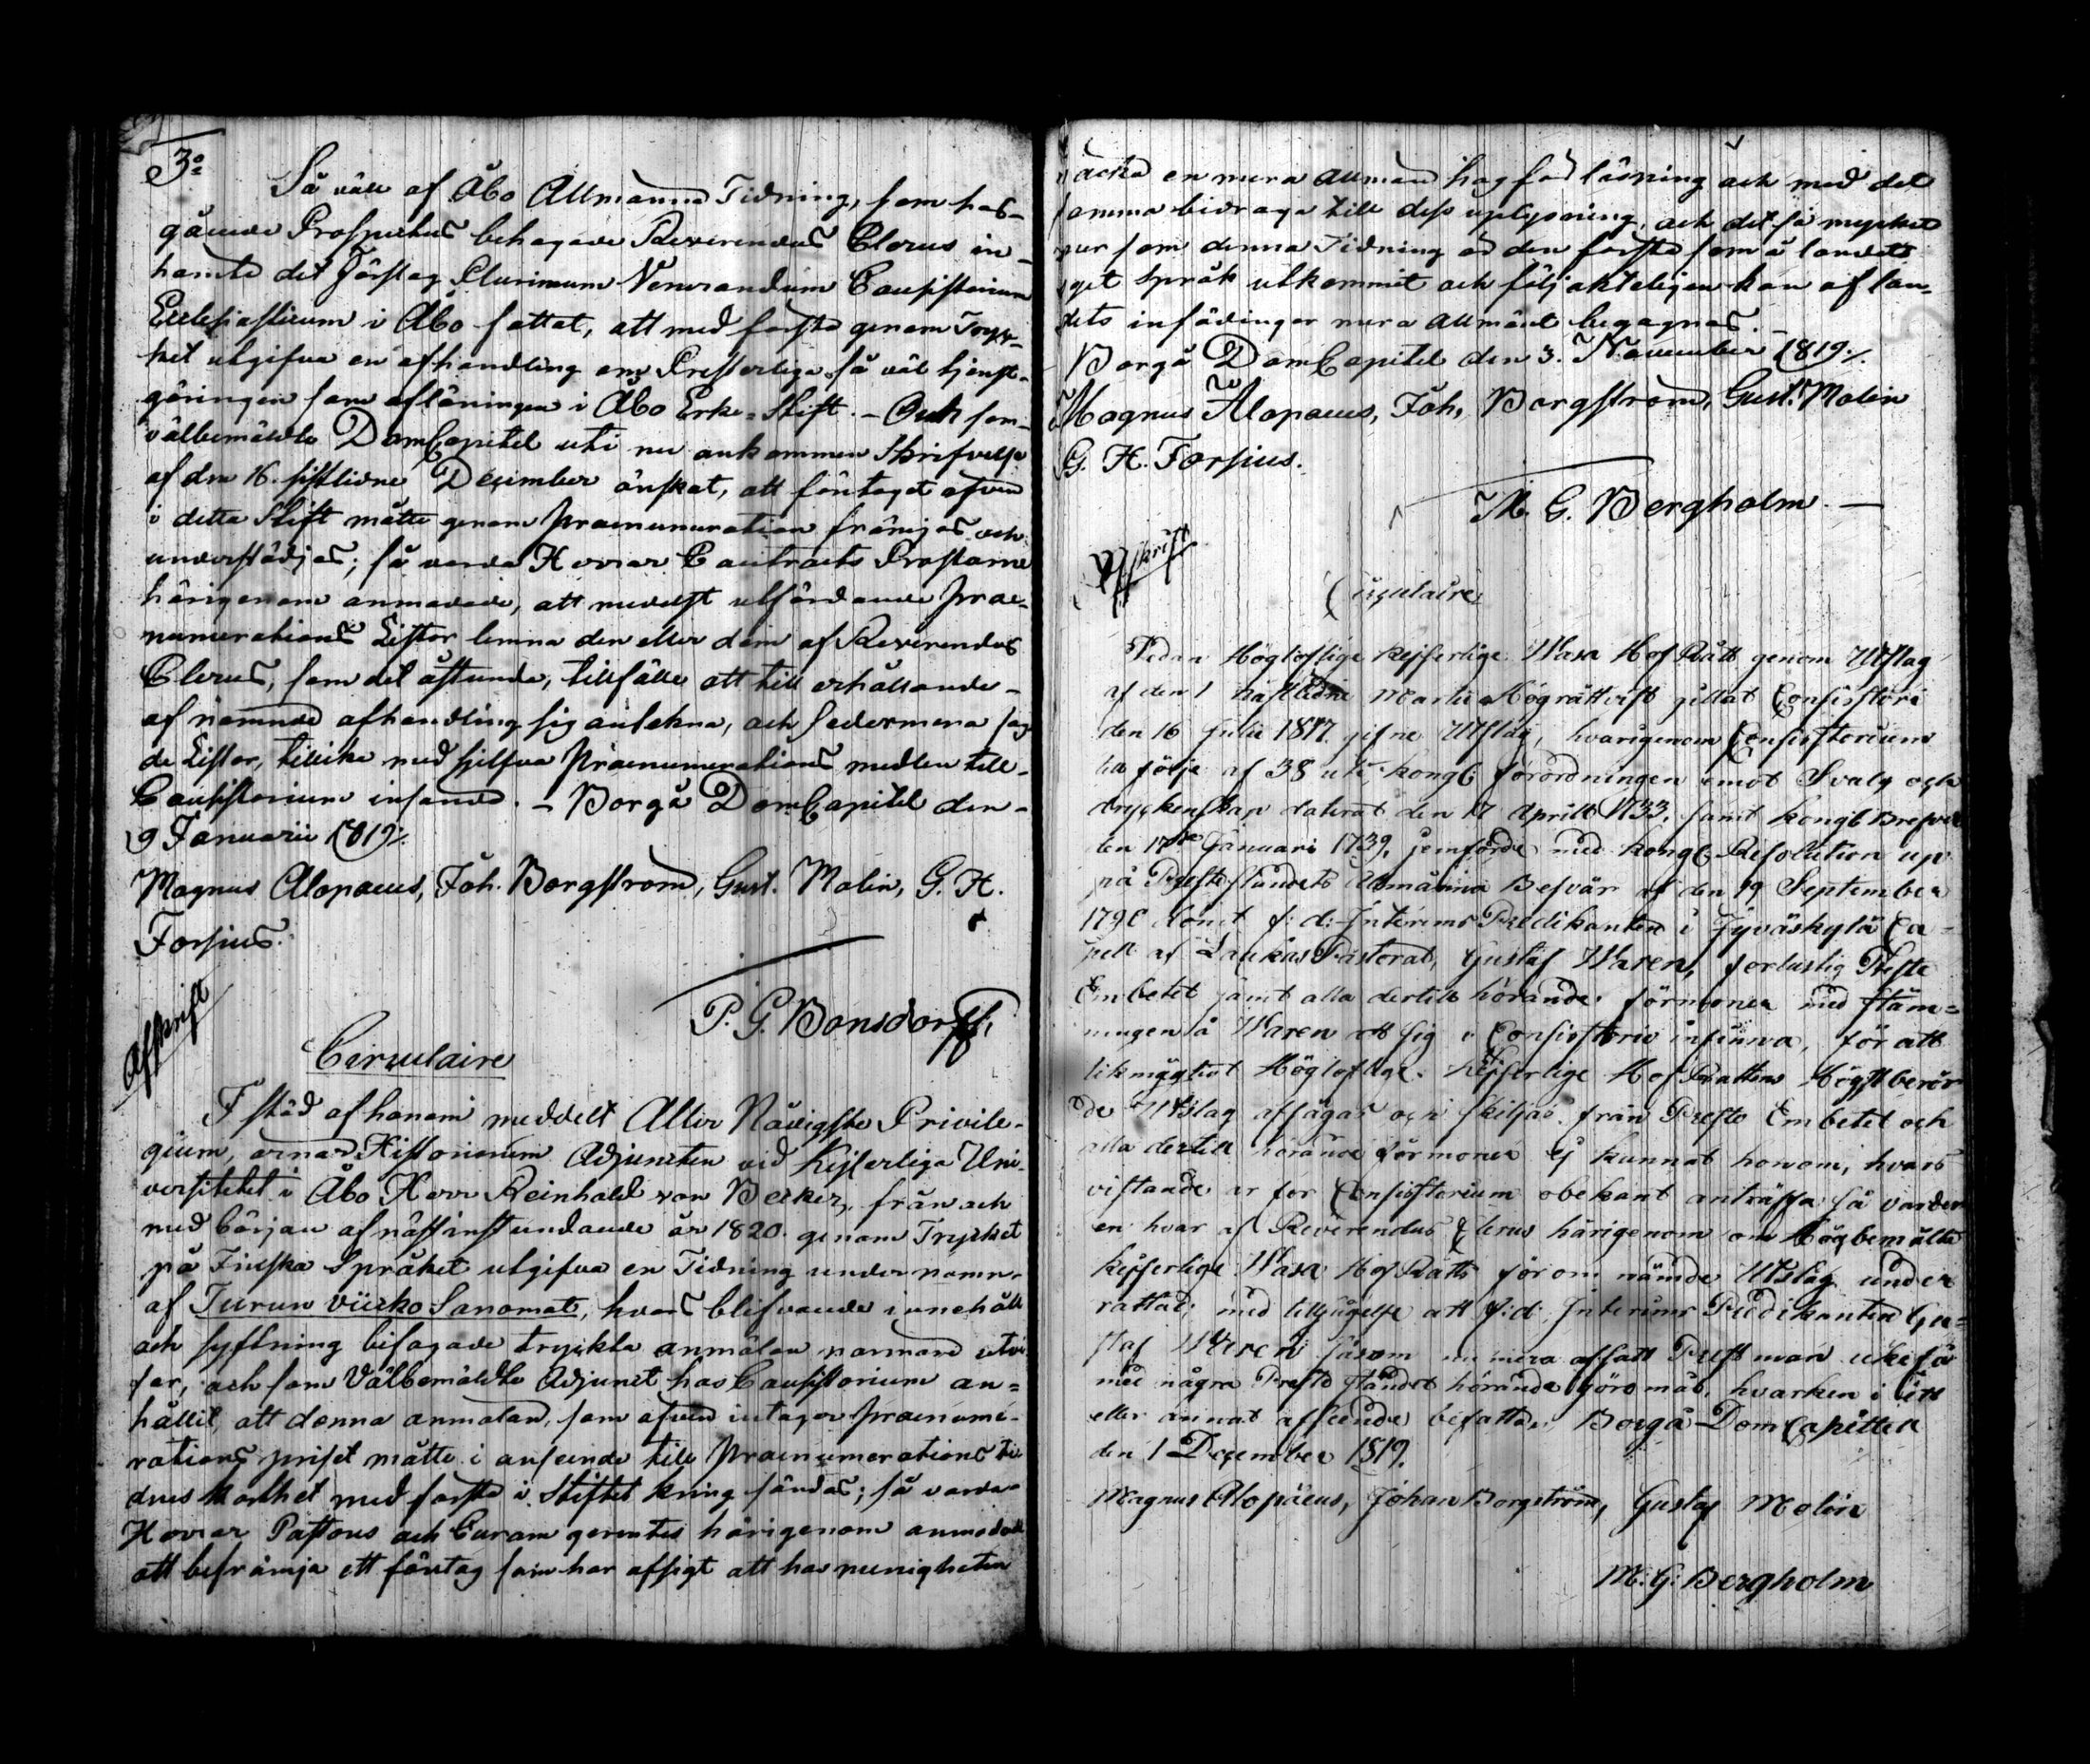 3:o
Så väll af Åbo Allmänna Tidning, som här-
gående Prospectus behagade Reverendus Clerus in-
hämta det förslag Plurimum Venerandum Consistorium
Ecclesiasticum i Åbo fattat, att med första genom Tryc-
ket utgifva en afhandling om Presterliga så väl tjenst-
göringen som aflöningen i Åbo Erke-Stift. - Och som
välbemälde DomCapitel uti nu ankommen Skrifvelse
af den 16. sistlidne December önskat, att företaget äfven
i detta Stift måtte genom praenumeration främjas och
understödjas; så varda Herrar Contracts Prostarne
härigenom anmodade, att medelst utfärdande prae-
numerations Listor lemna den eller dem af Reverendus
Clerus, som det åstunda, tillfälle att till erhållande-
af nämnde afhandling sig anteckna, och sedermera sag-
de Listor, tillika med sjelfva Praenumerations medlen till-
Consistorium insända. - Borgå DomCapitel den-
9 Januarii 1819./.
Magnus Alopaeus, Joh. Borgström, Gust. Molin, G. H.
Forsius.
P. G. Bonsdorff.
Afskrift
Circulaire
I stöd af honom meddelt Aller Nådigste Privile-
gium, ärnar Historiarum Adjuncten vid Kejserliga Uni-
versitetet i Åbo Herr Reinhold von Becker, från och
med början af nästinstundande år 1820. genom Trycket
på Finska Språket utgifva en Tidning under namn-
af Turun Viicko Sanomat, hvars blifvande innehåll
och syftning bifogade tryckta anmälan närmare utvi-
sar, och som Välbemälde Adjunct hos Consistorium an=
hållit, att denna anmälan, som äfven intager praenume-
rations priset måtte i anseende till praenumerations ti-
dens korthet med första i Stiftet kring sändas; så varda-
Herrar Pastores och Curam gerentes härigenom anmodade
att befrämja ett företag som har afsigt att hos menigheten
väcka en mera allmän håg för läsning och med det
samma bidraga till dess uplysning, och det så mycket
mer som denna Tidning är den första som å landets
eget språk utkommit och följakteligen kan af lan-
dets infödingar mera allmänt begagnas.
Borgå DomCapitel den 3. November 1819./.
Magnus Alopaeus, Joh. Borgström, Gust. Molin
G. H. Forsius.
M. G. Bergholm. -
Afskrift
Circulaire
Sedan Högloflige Kejserlige Wasa HofRätt genom Utslag
af den 1 nästledne Martii Högrättvist gillat Consistorii
den 16 Julii 1817. gifne Utslag, hvarigenom Consistorium
til följe af 3§ uti Kongl. förordningen emot Svalg och
dryckenskap daterat den 17 Aprill 1733, samt Kongl Brefvet
den 17de Januari 1739, jemförde med Kongl Resolution up
på PresteStåndets Allmänna Besvär af den 19 September
dömt f: d: Interims Predikanten i Jyväskylä Ca-
pell af Laukas Pastorat, Gustaf Waren, förlustig Preste
Embetet jämt alla dertill hörande förmoner med stäm=
ningen å Waren att sig i Consistorio infinna, för att
likmägtigt Högloflige Kejserlige HofRättens Högstberör
de Utslag afsägas och skiljas från Preste Embetet och
alla dertill hörande förmoner ej kunnat honom, hvars
vistande är för Consistorium obekant anträffa så varder
en hvar af Reverendus Clerus härigenom om Högbemälte
Kejserlige Wasa HofRätts förom nämde Utslag under
rättad; med tillsägelse att f: d: Interims Predikanten Gu=
staf Waren såsom nu mera afsatt Prestman icke få
med några Preste ståndet hörande göromål, hvarken i ett
eller annat afseende befatta. Borgå DomCapittel
den 1 December 1819.
Magnus Alopäeus, Johan Borgström, Gustaf Molin
M: G: Bergholm